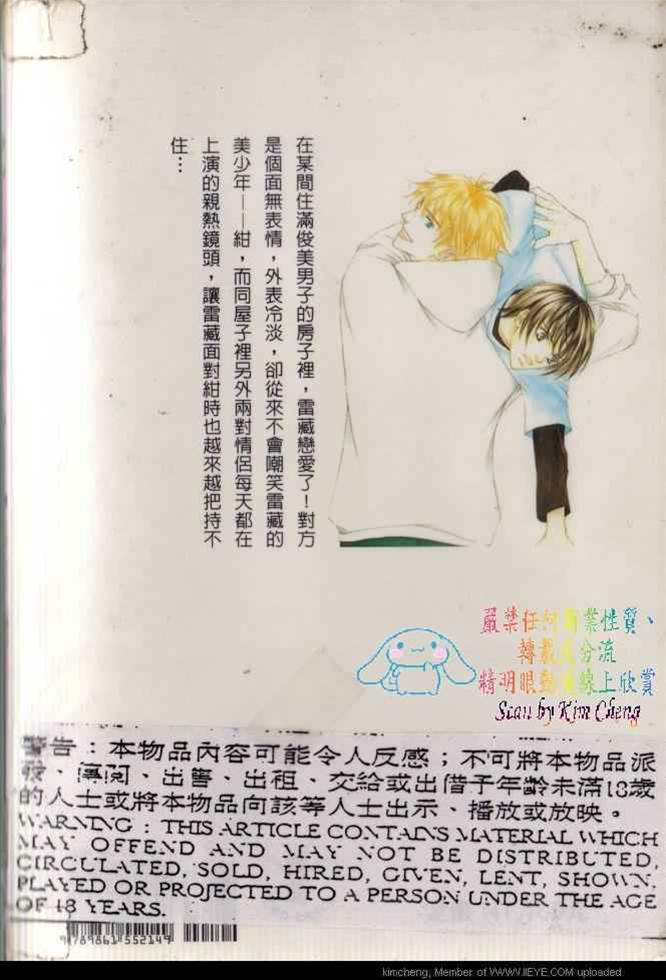 在某間住滿俊美男子的房子裡，雷藏戀愛了！對方
是個面無表情，外表冷淡，卻從來不會嘲笑雷藏的
美少年——紺，而同屋子裡另外兩對情侶每天都在
上演的親熱鏡頭，讓雷藏面對紺時也越來越把持不
住…
嚴禁任何商業性質、
轉載或分流
精明眼動漫線上欣賞
Scan by Kim Cheng
警告：本物品內容可能令人反感；不可將本物品派
發、傳閱、出售、出租、交給或出借予年齡未滿18歲
的人士或將本物品向該等人士出示、播放或放映。
WARNING : THIS ARTICLE CONTAINS MATERIAL WHICH
MAY OFFEND AND MAY NOT BE DISTRIBUTED,
CIRCULATED, SOLD, HIRED, GIVEN, LENT, SHOWN,
PLAYED OR PROJECTED TO A PERSON UNDER THE AGE
OF 18 YEARS.
9789861552149
kimcheng, Member of WWW.IIEYE.COM uploaded